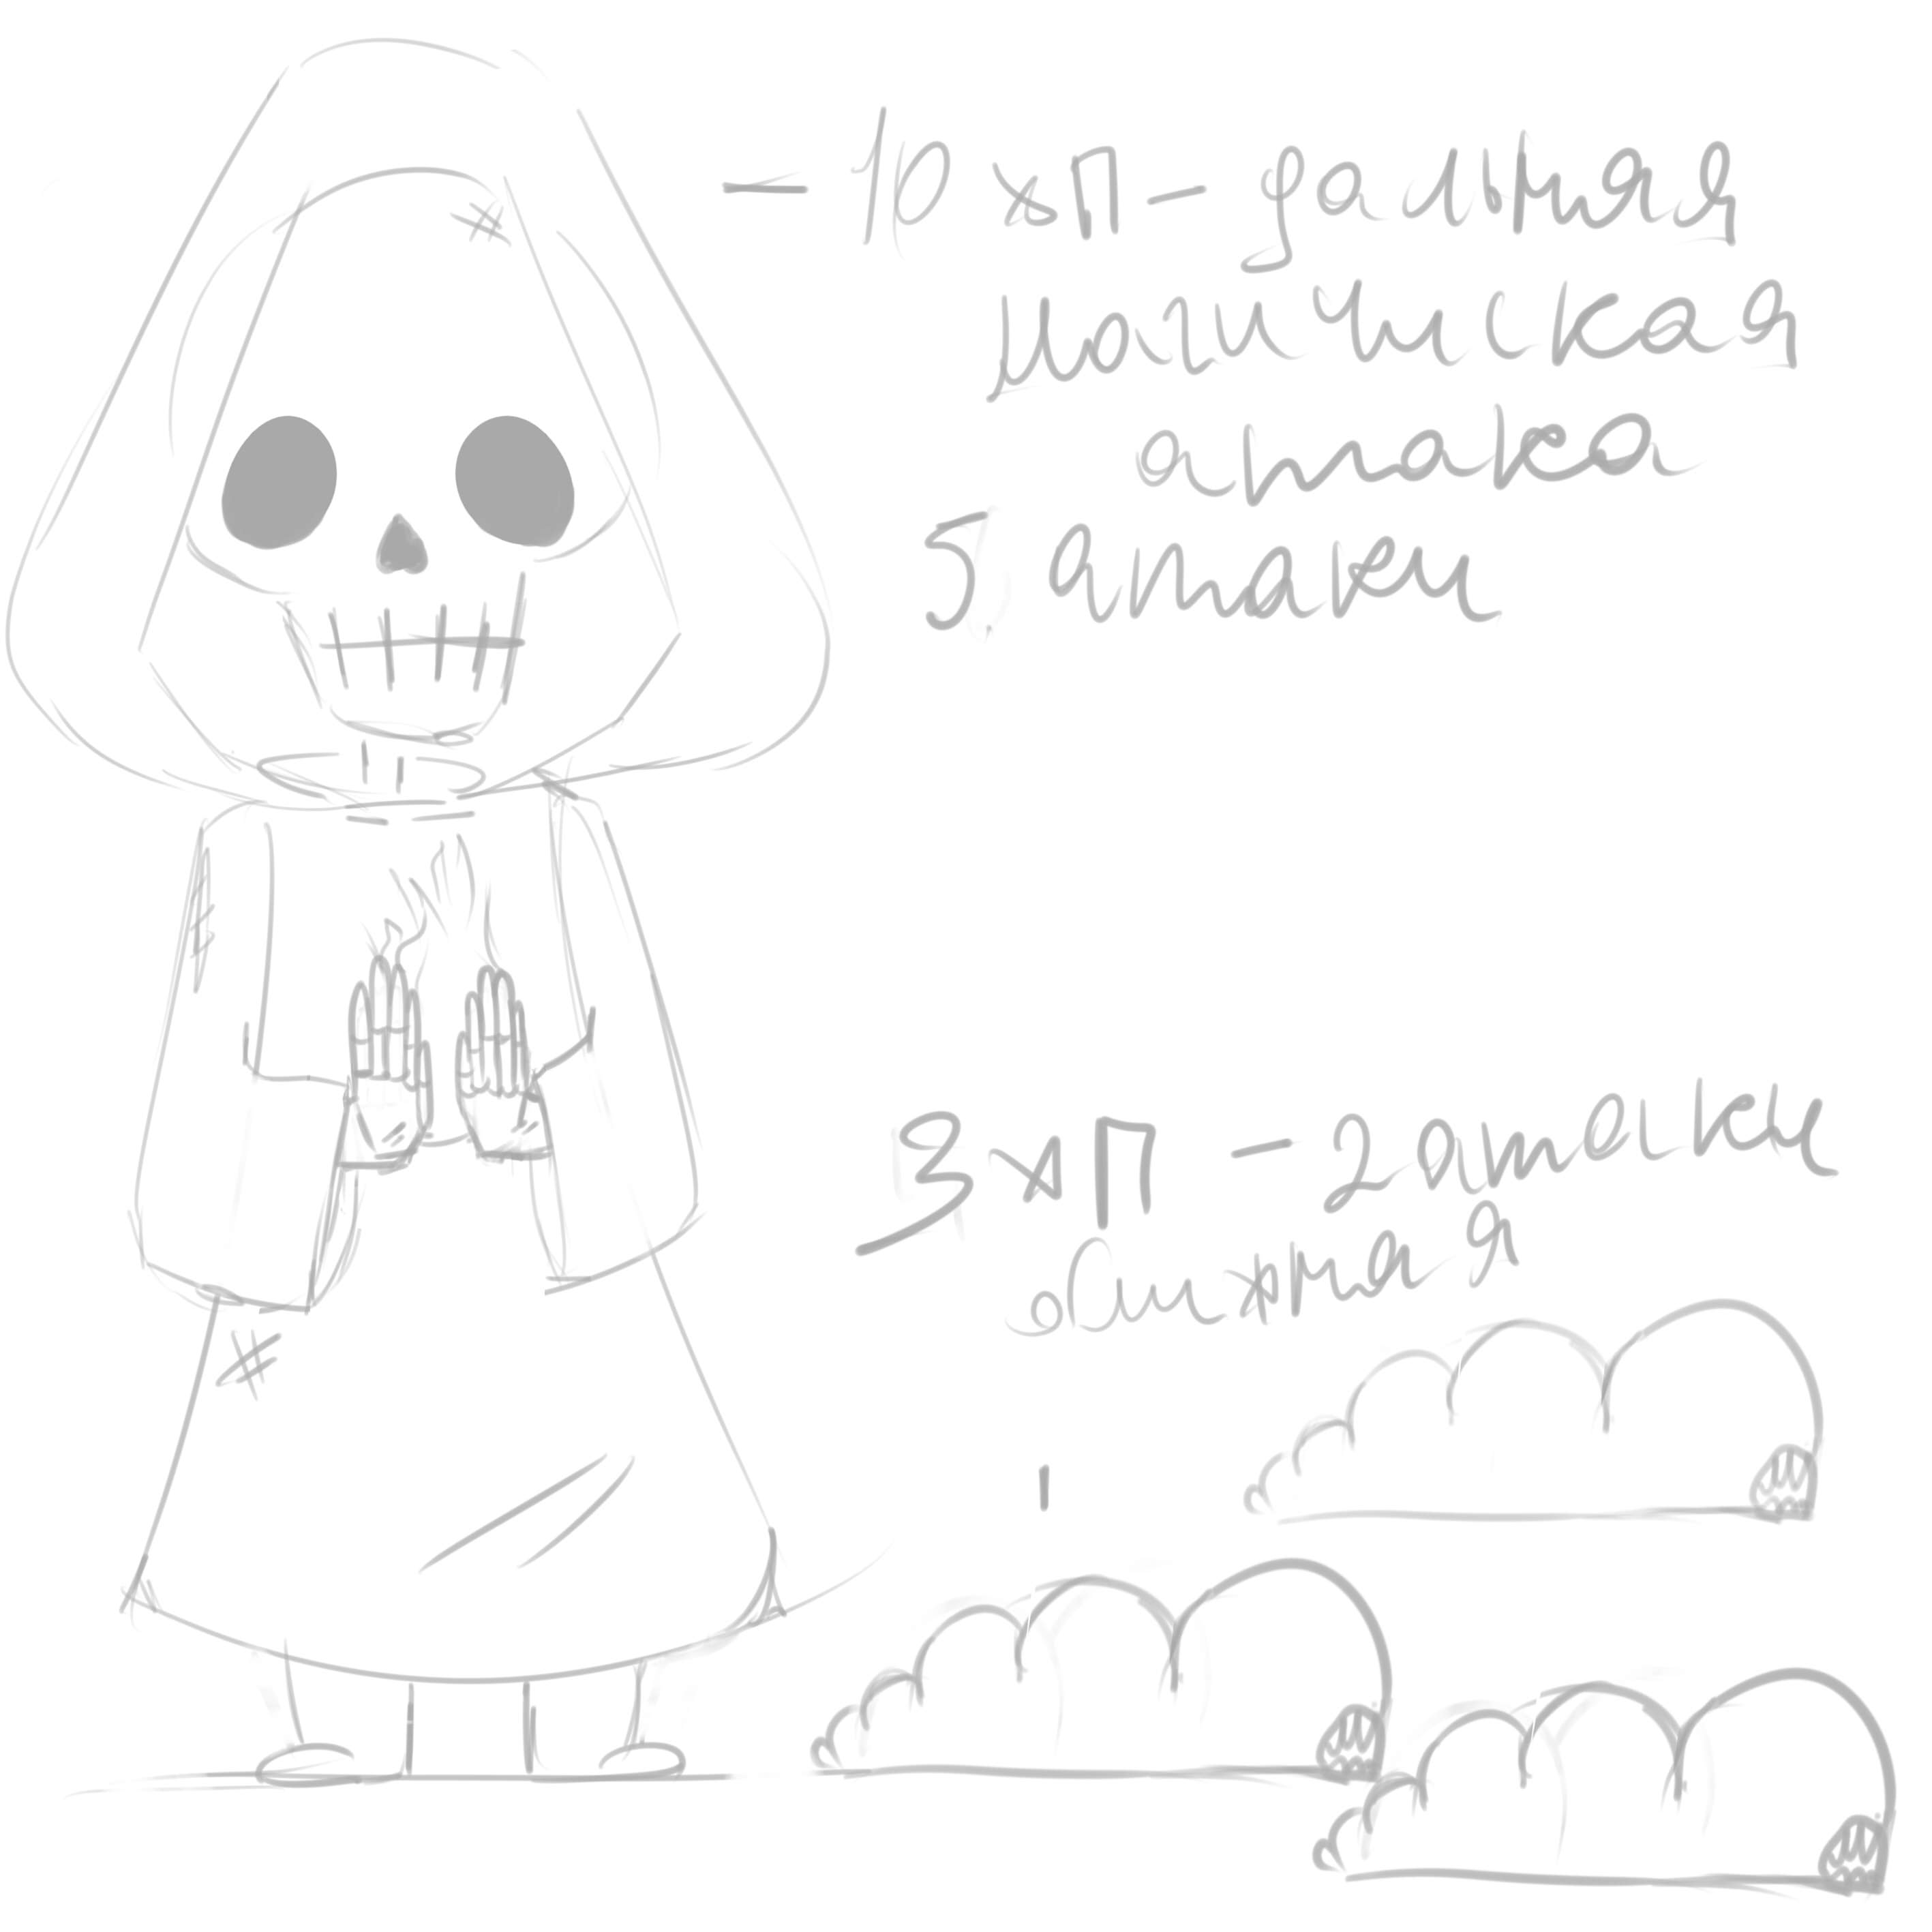 - 10 хп - дальняя
магическая
атака
5 атаки
3 хп - 2 атаки
ближняя